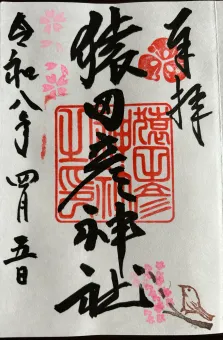 奉拝
猿田彦神社
令和八年 四月 五日